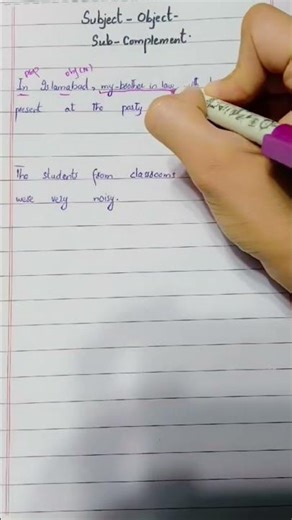 Subject - Object -
Sub - Complement.
prep obj (N)
In Islamabad, my-brother in law
present at the party
The students from classrooms
were very noisy.